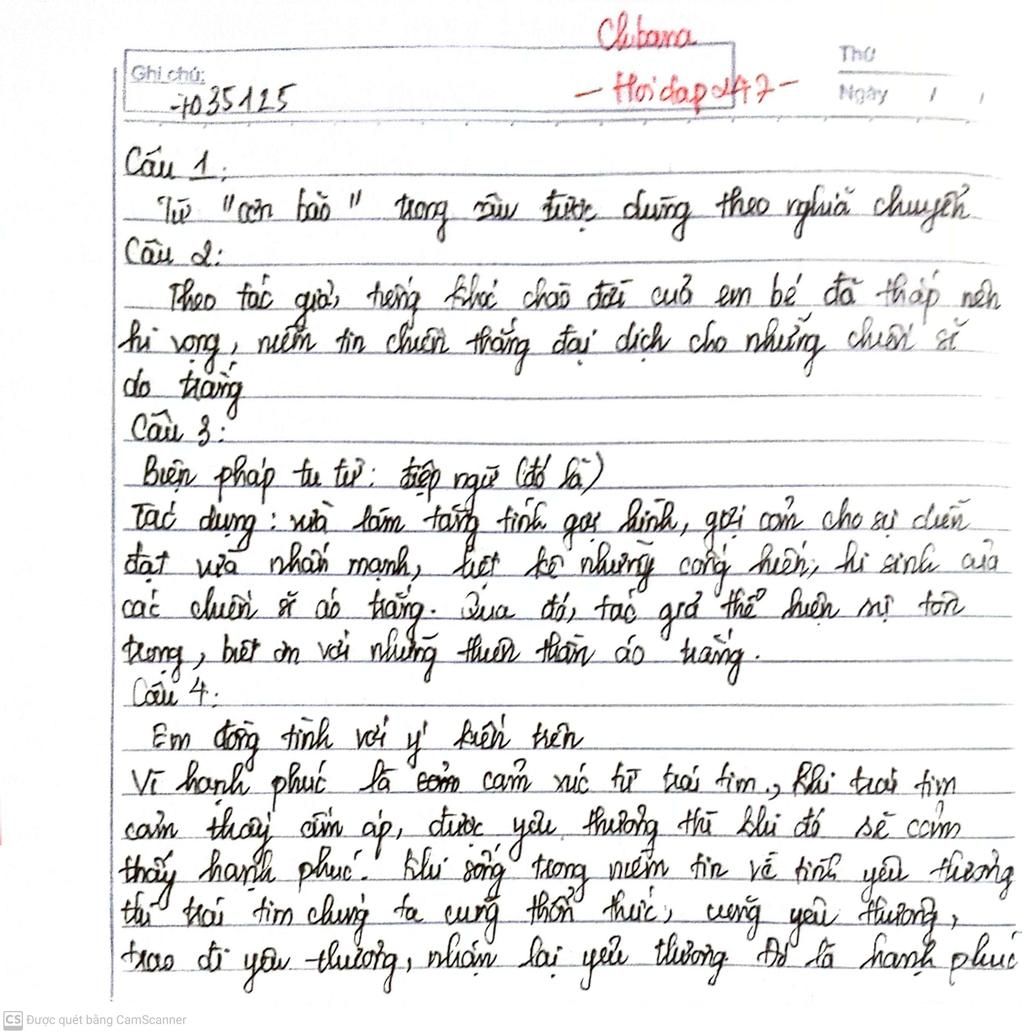 Chibana
Ghi chú:
Thứ
- Hoidap247 -
Ngày / /
+035125
Câu 1:
Từ "cơn bão" trong câu được dùng theo nghĩa chuyển
Câu 2:
Theo tác giả, tiếng khóc chào đời của em bé đã thắp nên
hi vọng, niềm tin chiến thắng đại dịch cho những chiến sĩ
áo trắng
Câu 3:
Biện pháp tu từ: điệp ngữ (đó là)
Tác dụng: vừa làm tăng tính gợi hình, gợi cảm cho sự diễn
đạt vừa nhấn mạnh, liệt kê những cống hiến, hi sinh của
các chiến sĩ áo trắng. Qua đó, tác giả thể hiện sự tôn
trọng, biết ơn với những thiên thần áo trắng.
Câu 4:
Em đồng tình với ý kiến trên
Vì hạnh phúc là cảm xúc từ trái tim, khi trái tim
cảm thấy ấm áp, được yêu thương thì khi đó sẽ cảm
thấy hạnh phúc. Khi sống trong niềm tin về tình yêu thương
thì trái tim chúng ta cũng thổn thức, cũng yêu thương,
trao đi yêu thương, nhận lại yêu thương. Đó là hạnh phúc
CS Được quét bằng CamScanner